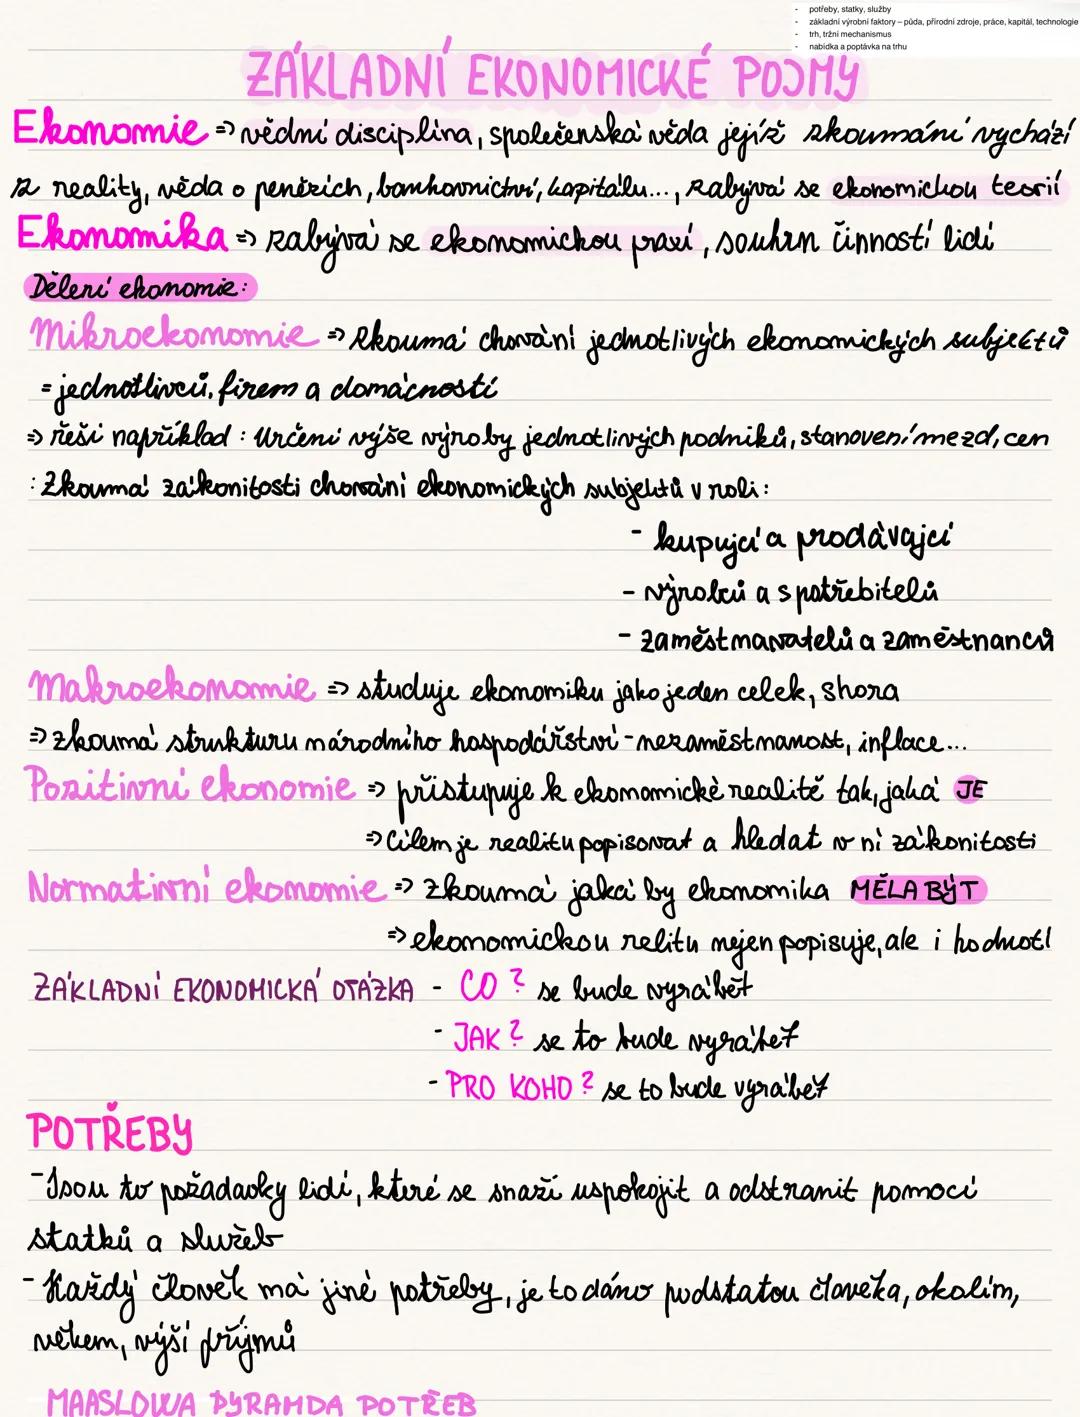 - potřeby, statky, služby
- základní výrobní faktory – půda, přírodní zdroje, práce, kapitál, technologie
- trh, tržní mechanismus
- nabídka a poptávka na trhu
ZÁKLADNÍ EKONOMICKÉ POJMY
Ekonomie => vědní disciplína, společenská věda jejíž zkoumání vychází
z reality, věda o penězích, bankovnictví, kapitálu..., zabývá se ekonomickou teorií
Ekonomika => zabývá se ekonomickou praxí, souhrn činností lidí
Dělení ekonomie:
Mikroekonomie => zkoumá chování jednotlivých ekonomických subjektů
= jednotlivců, firem a domácností
=> řeší například : Určení výše výroby jednotlivých podniků, stanovení mezd, cen
: Zkoumá zákonitosti chování ekonomických subjektů v roli:
- kupující a prodávající
- výrobců a spotřebitelů
- zaměstnavatelů a zaměstnanců
Makroekonomie => studuje ekonomiku jako jeden celek, shora
=> zkoumá strukturu národního hospodářství - nezaměstnanost, inflace...
Pozitivní ekonomie => přistupuje k ekonomické realitě tak, jaká JE
=> Cílem je realitu popisovat a hledat v ní zákonitosti
Normativní ekonomie => zkoumá jaká by ekonomika MĚLA BÝT
=> ekonomickou relitu nejen popisuje, ale i hodnotí
ZÁKLADNÍ EKONOMICKÁ OTÁZKA - CO? se bude vyrábět
- JAK? se to bude vyrábět
- PRO KOHO? se to bude vyrábět
POTŘEBY
- Jsou to požadavky lidí, které se snaží uspokojit a odstranit pomocí
statků a služeb
- Každý člověk má jiné potřeby, je to dáno podstatou člověka, okolím,
věkem, výší příjmů
MAASLOWA PYRAMDA POTŘEB